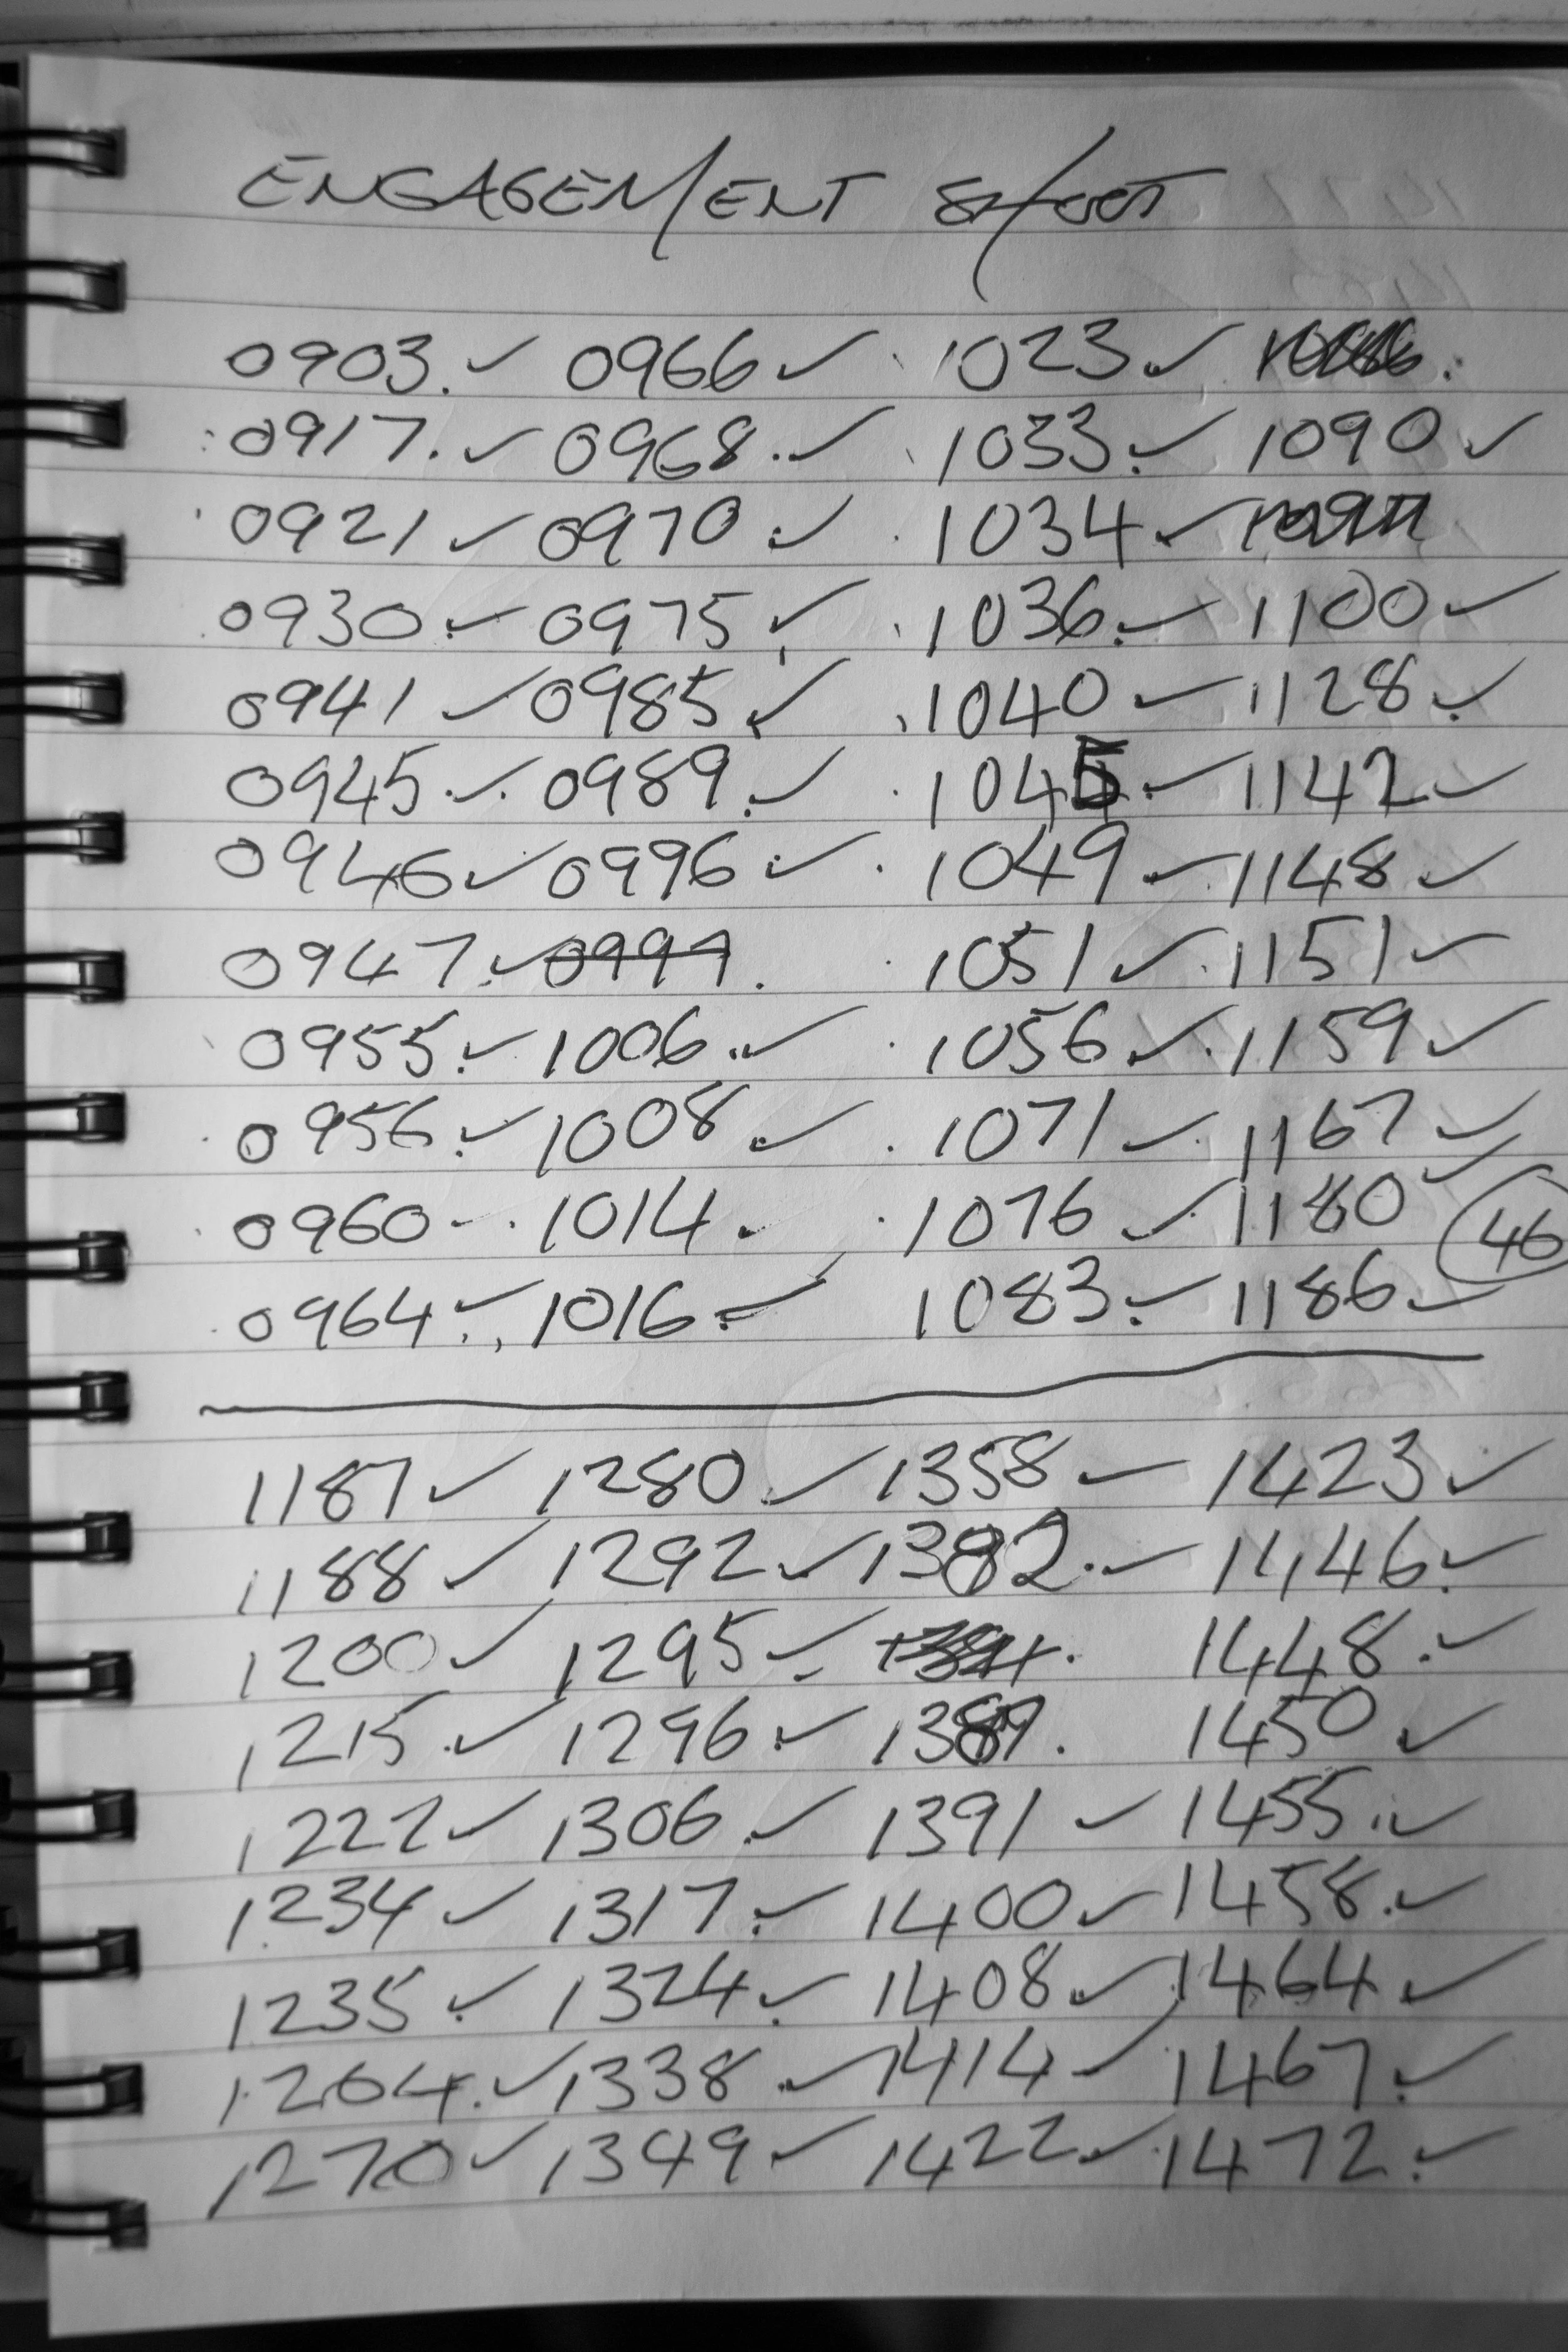 ENGAGEMENT SHOOT
0903. ✓ 0966 ✓ 1023 ✓
0917. ✓ 0968. ✓ 1033. ✓ 1090 ✓
0921 ✓ 0970 ✓ 1034 ✓
0930 ✓ 0975 ✓ 1036. ✓ 1100 ✓
0941 ✓ 0985 ✓ 1040 ✓ 1128 ✓
0945 ✓ 0989. ✓ 1045 ✓ 1142 ✓
0946 ✓ 0996 ✓ 1049 ✓ 1148 ✓
0947. ✓ 0999. 1051 ✓ 1151 ✓
0955. ✓ 1006. ✓ 1056 ✓ 1159 ✓
0956. ✓ 1008 ✓ 1071 ✓ 1167 ✓
0960 - 1014. 1076 ✓ 1180 ✓ 46
0964 ✓ 1016. ✓ 1083. ✓ 1186 ✓
1187 ✓ 1280 ✓ 1358 ✓ 1423 ✓
1188 ✓ 1292 ✓ 1382. ✓ 1446. ✓
1200 ✓ 1295 ✓ 1448. ✓
1215 ✓ 1296 ✓ 1389. 1450 ✓
1222 ✓ 1306 ✓ 1391 ✓ 1455. ✓
1234 ✓ 1317. ✓ 1400 ✓ 1458. ✓
1235 ✓ 1324 ✓ 1408 ✓ 1464 ✓
1264. ✓ 1338 ✓ 1414 ✓ 1467. ✓
1270 ✓ 1349 ✓ 1422 ✓ 1472. ✓